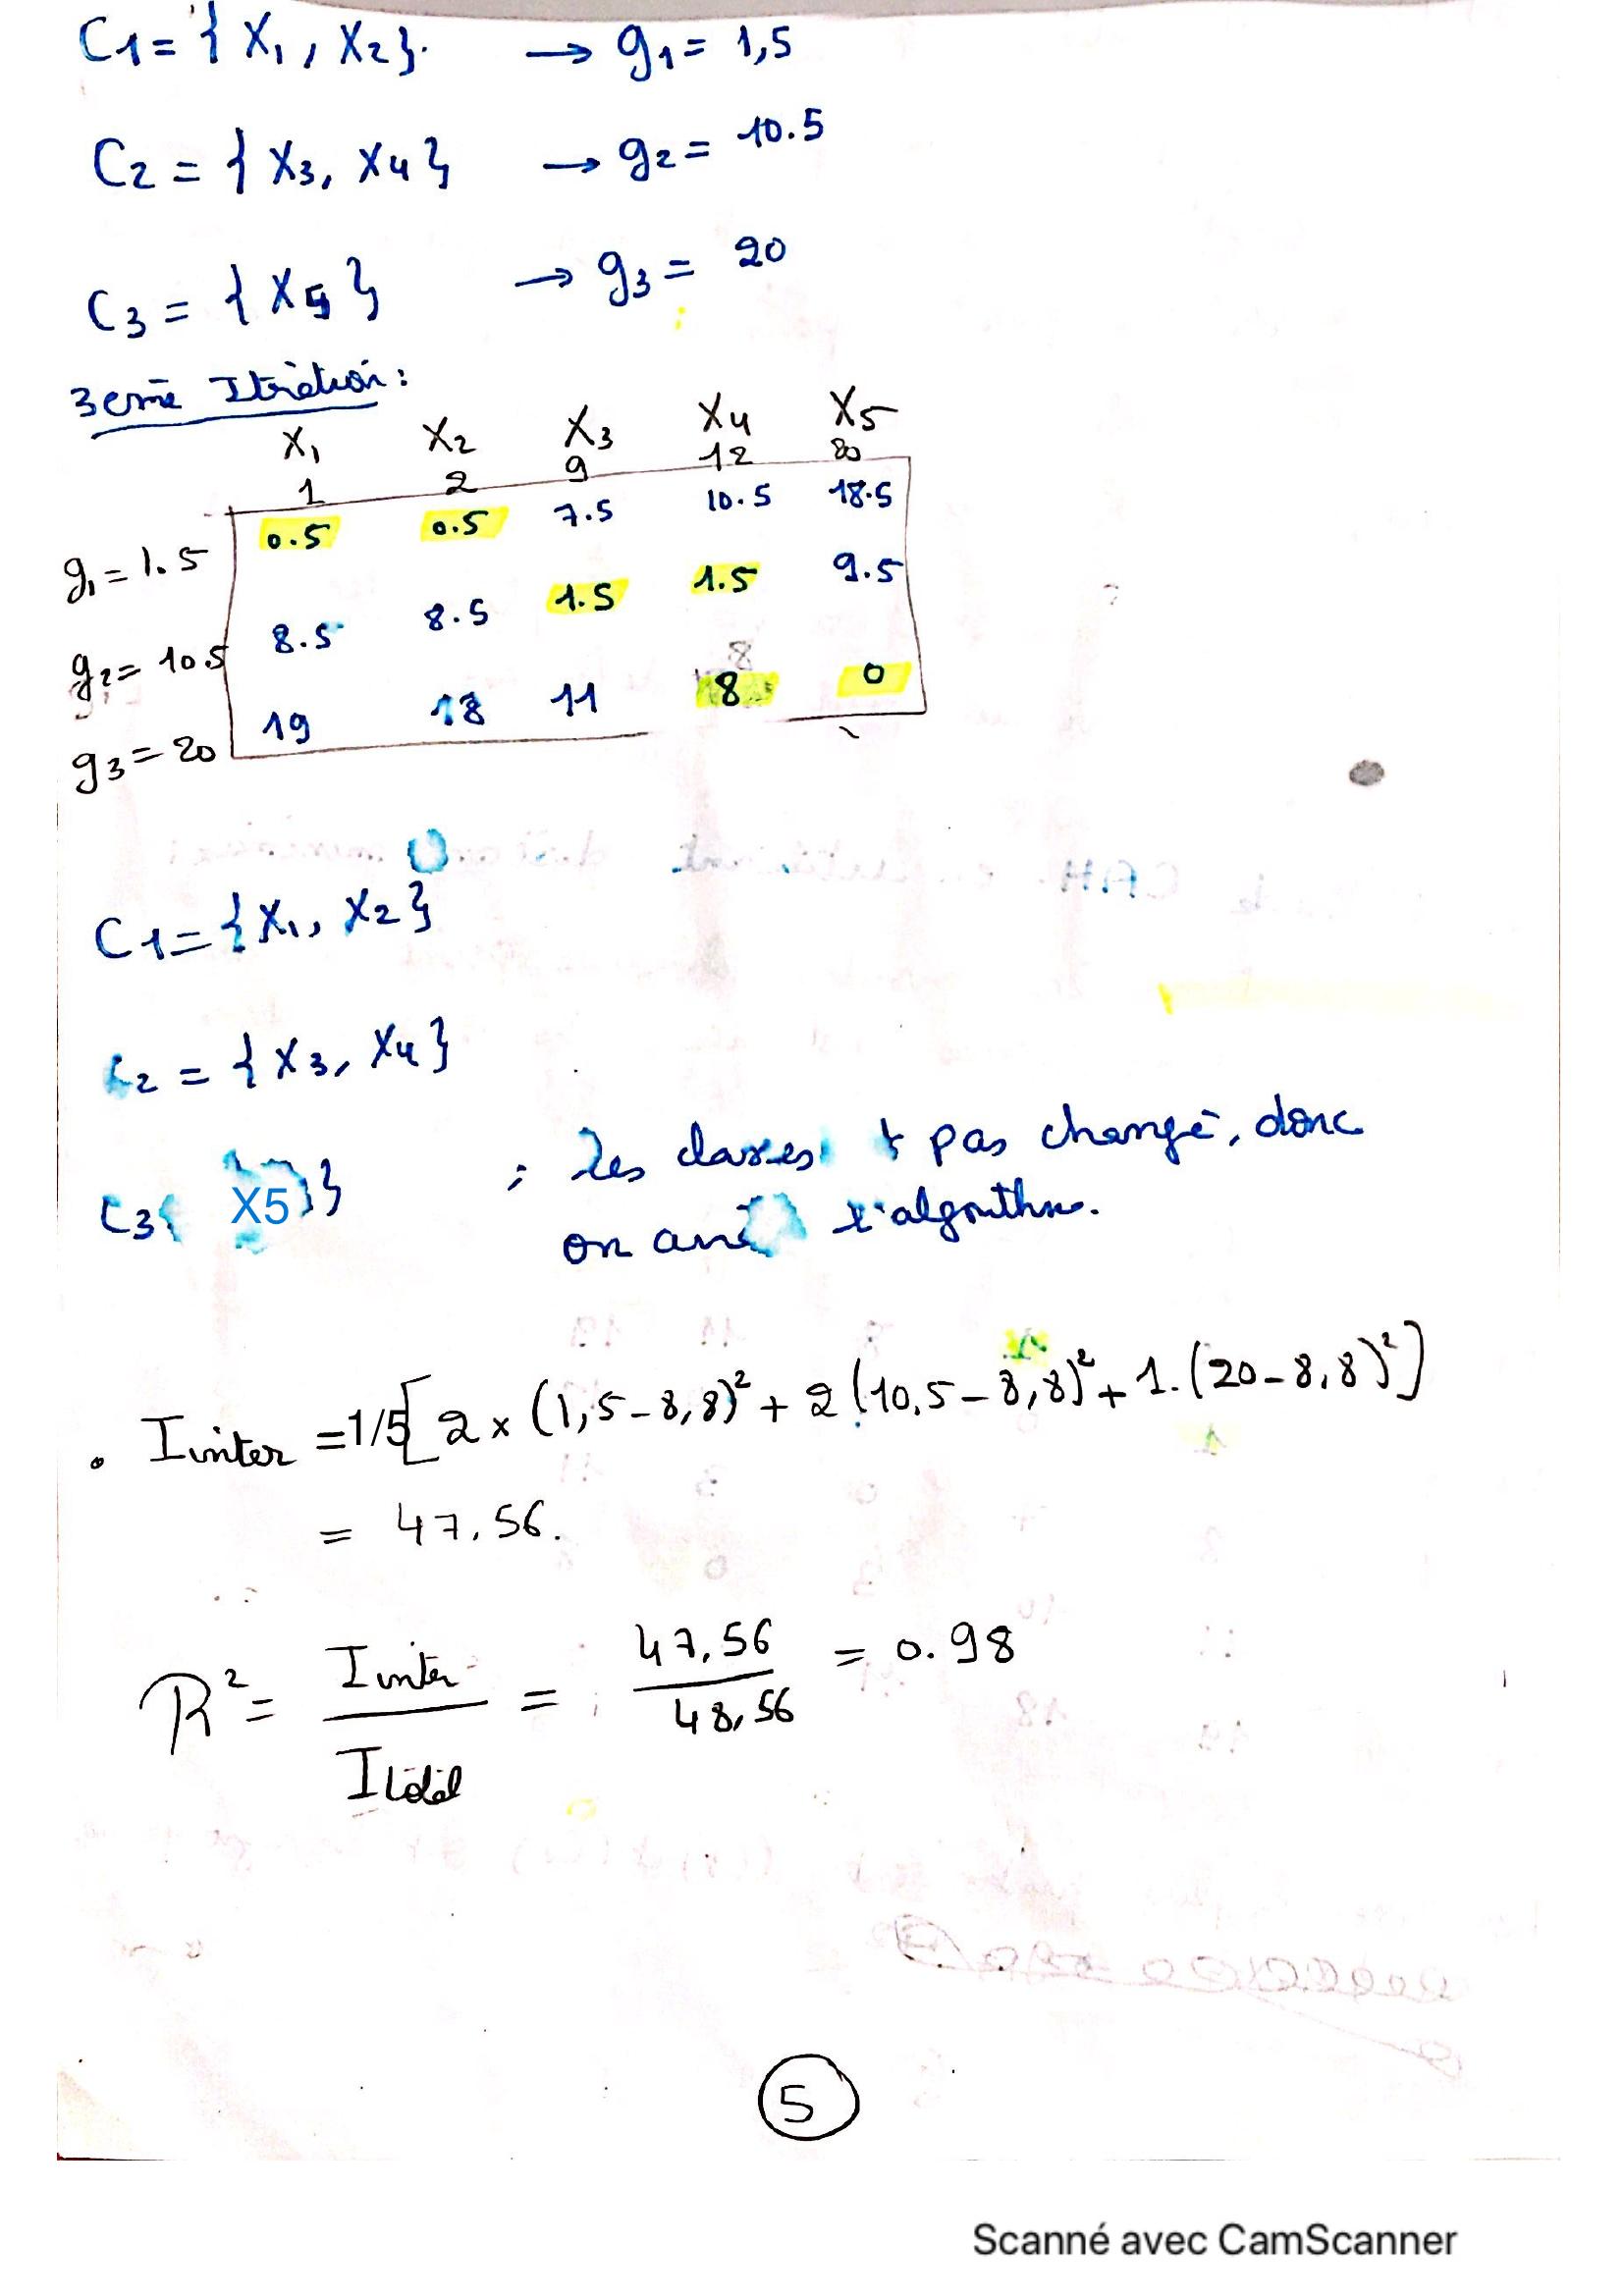 C1 = { X1, X2 }. → g1 = 1,5
C2 = { X3, X4 } → g2 = 10.5
C3 = { X5 } → g3 = 20
3eme Itération :
X1 X2 X3 X4 X5
1 2 9 12 20
g1 = 1.5 0.5 0.5 7.5 10.5 18.5
g2 = 10.5 8.5 8.5 1.5 1.5 9.5
8
g3 = 20 19 18 11 8 0
C1 = { X1, X2 }
C2 = { X3, X4 }
C3 { X5 } ; les classes pas changé, donc
on l'algorithme.
• Iinter = 1/5 [ 2 × (1,5 - 8,8)² + 2 (10,5 - 8,8)² + 1. (20 - 8,8)² ]
= 47,56.
R² = Iinter / Itotal = 47,56 / 48,56 = 0.98
5
Scanné avec CamScanner